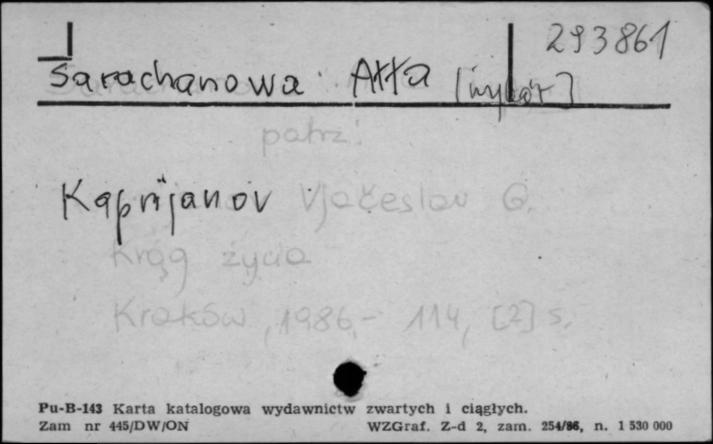 293861
Sarachanowa Ałła [wybór]
patrz:
Kuprijanov Vjačeslav G.
Krąg życia
Kraków, 1986.- 114, [2] s.
Pu-B-143 Karta katalogowa wydawnictw zwartych i ciągłych.
Zam nr 445/DW/ON WZGraf. Z-d 2, zam. 254/86, n. 1 530 000